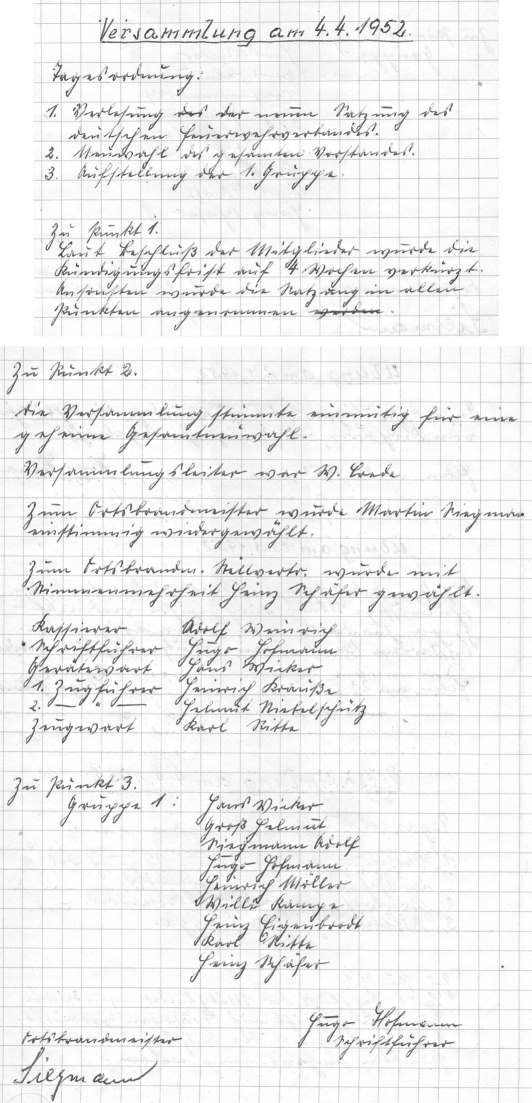 Versammlung am 4.4.1952.
Tagesordnung:
1. Verlesung des der neuen Satzung des
deutschen Feuerwehrverbandes.
2. Neuwahl des gesamten Vorstandes.
3. Aufstellung der 1. Gruppe.
Zu Punkt 1.
Laut Beschluß der Mitglieder wurde die
Kündigungsfrist auf 4 Wochen verkürzt.
Ansonsten wurde die Satzung in allen
Punkten angenommen werden.
Zu Punkt 2.
Die Versammlung stimmte einmütig für eine
geheime Gesamtneuwahl.
Versammlungsleiter war W. Brede
Zum Ortsbrandmeister wurde Martin Siegman
einstimmig wiedergewählt.
Zum Ortsbrandm. Stellvertr. wurde mit
Stimmenmehrheit Heinz Schäfer gewählt.
Kassierer Adolf Weinrich
Schriftführer Hugo Hofmann
Gerätewart Hans Wicker
1. Zugführer Heinrich Krauße
2. — " — Helmut Nietelschütz
Zeugwart Karl Ritte
Zu Punkt 3.
Gruppe 1: Hans Wicker
Groß Helmut
Siegmann Adolf
Hugo Hofmann
Heinrich Möller
Willi Kampe
Heinz Eigenbrodt
Karl Ritte
Heinz Schäfer
Hugo Hofmann
Ortsbrandmeister Schriftführer
Siegmann